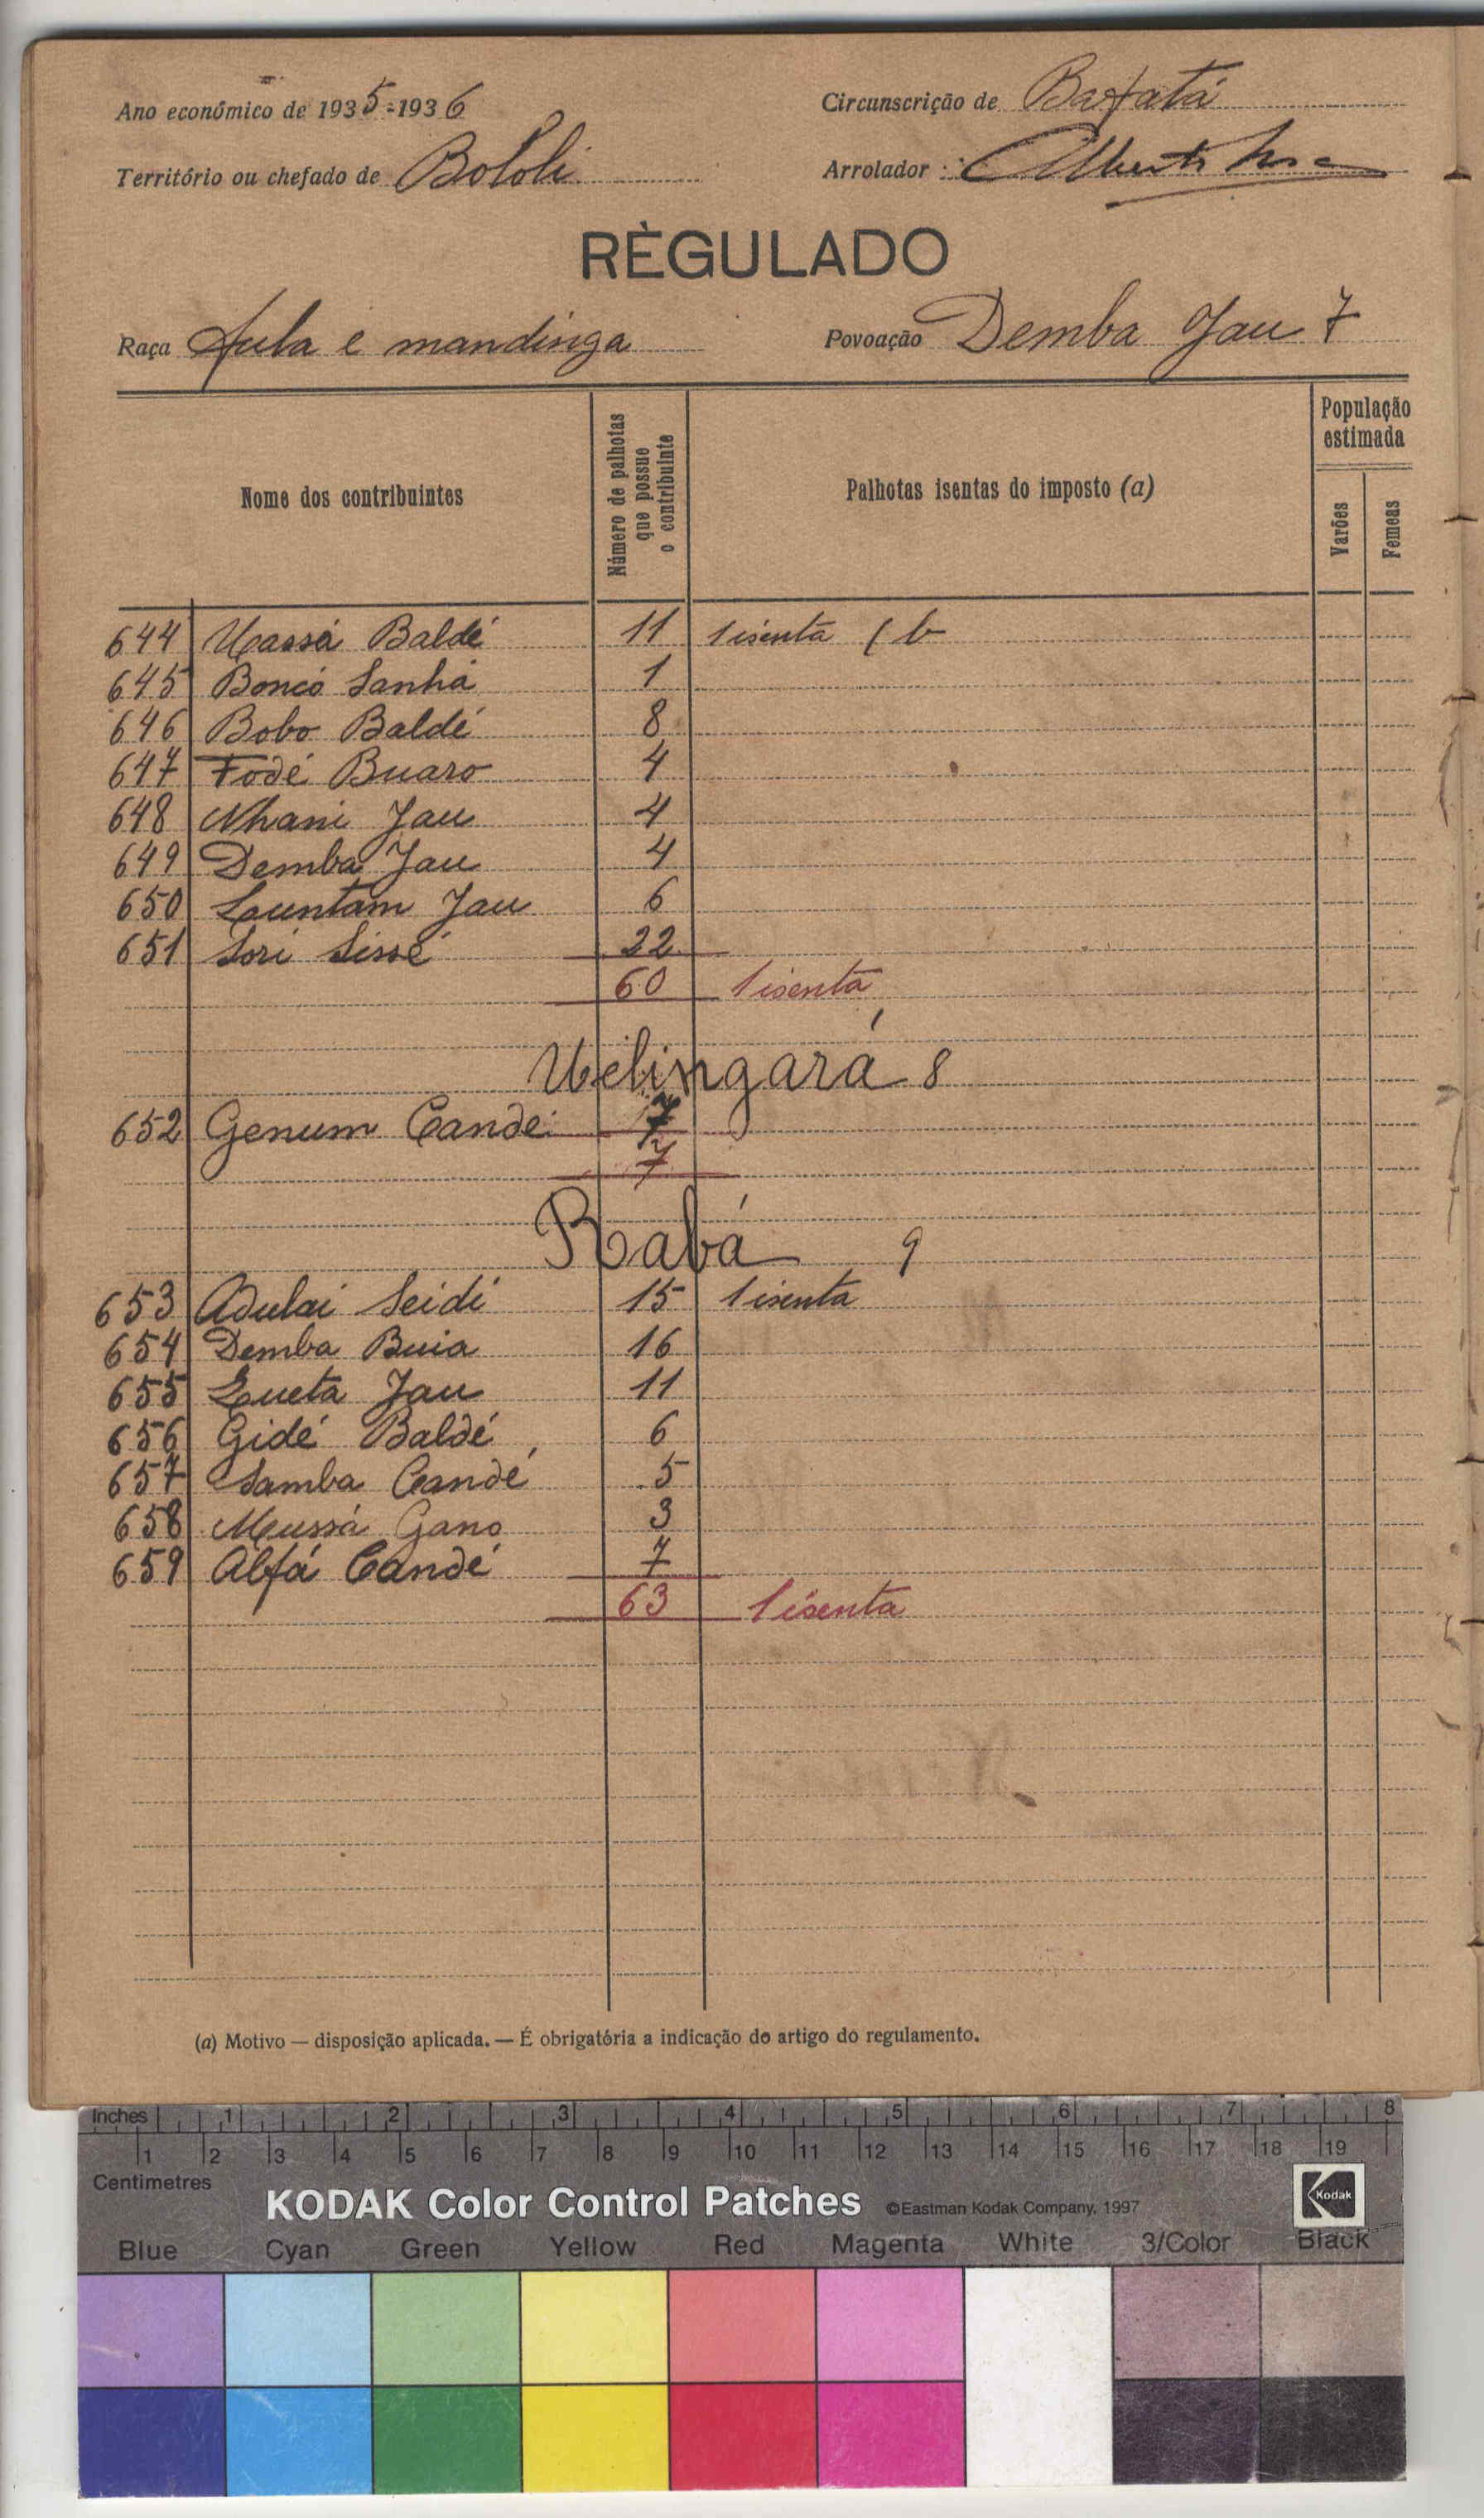 Ano económico de 1935-1936
Circunscrição de Bafatá
Território ou chefado de Bololi
Arrolador: Alberto
RÈGULADO
Raça Fula e mandinga
Povoação Demba Jau 7
Nome dos contribuintes
Número de palhotas que possue o contribuinte
Palhotas isentas do imposto (a)
População estimada
Varões
Femeas
644 Uassá Baldé 11 1 isenta ( b
645 Boncó Sanhá 1
646 Bobo Baldé 8
647 Fodé Buaro 4
648 Nhani Jau 4
649 Demba Jau 4
650 Launtam Jau 6
651 Sori Sissé 22
60 1 isenta
Uelingará 8
652 Genum Cande 7
7
Rabá 9
653 Adulai Seidi 15 1 isenta
654 Demba Buia 16
655 Queta Jau 11
656 Gidé Baldé 6
657 Samba Candé 5
658 Mussá Gano 3
659 Alfá Candé 7
63 1 isenta
(a) Motivo — disposição aplicada. — É obrigatória a indicação do artigo do regulamento.
Inches 1 2 3 4 5 6 7 8
1 2 3 4 5 6 7 8 9 10 11 12 13 14 15 16 17 18 19
Centimetres
KODAK Color Control Patches ©Eastman Kodak Company, 1997 Kodak
Blue Cyan Green Yellow Red Magenta White 3/Color Black